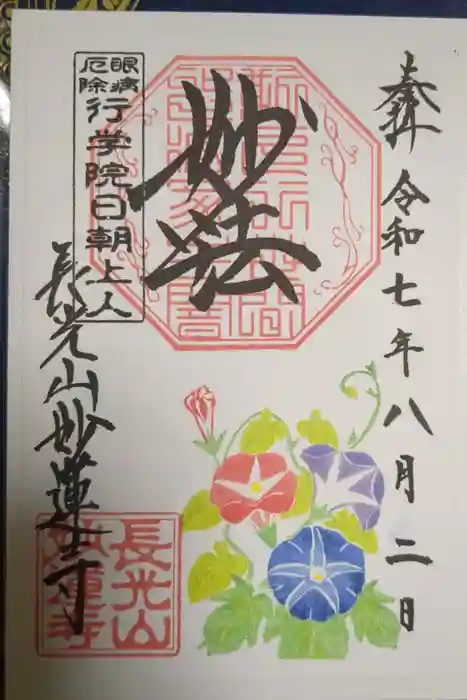 奉拝
令和七年八月二日
妙法
眼病
厄除
行学院日朝上人
長光山妙蓮寺
長光山
妙蓮寺